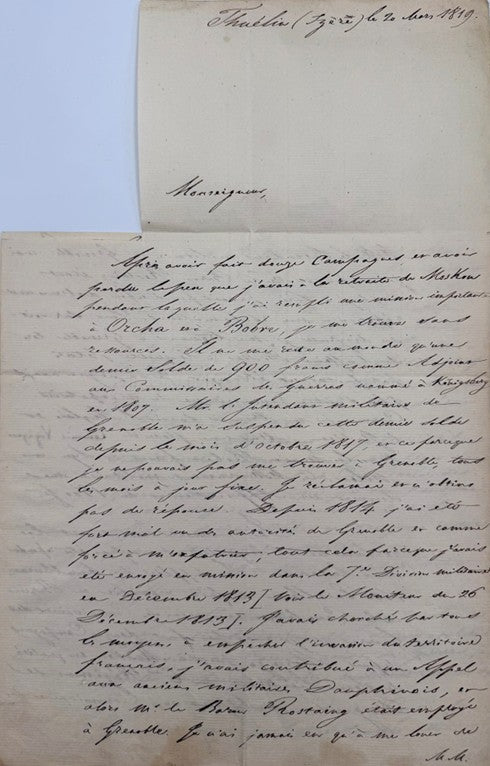 Thuélin (Isère) le 20 Mars 1819.
Monseigneur,
Après avoir fait douze Campagnes, et avoir
perdu le peu que j'avais à la retraite de Moskou
pendant laquelle j'ai rempli une mission importante
à Orcha et à Bobr, je me trouve sans
ressources. Il ne me reste au monde qu'une
demie solde de 900 francs comme Adjoint
aux Commissaires des Guerres nommé à Königsberg
en 1807. Mr. l'Intendant militaire de
Grenoble m'a suspendu cette demie solde
depuis le mois d'octobre 1817 et ce parceque
je ne pouvais pas me trouver à Grenoble tous
les mois à jour fixe. Je réclamai et n'obtins
pas de réponse. Depuis 1814 j'ai été
fort mal vu des autorités de Grenoble et comme
forcé à m'expatrier, tout cela parceque j'avais
été envoyé en mission dans la 7e. Division militaire
en Décembre 1813 [Voir le Moniteur du 26
Décembre 1813]. J'avais cherché par tous
les moyens à empêcher l'invasion du territoire
français, j'avais contribué à un Appel
aux anciens militaires Dauphinois, et
alors Mr. le Baron Rostaing était employé
à Grenoble. Je n'ai jamais eu qu'à me louer de
M.M.